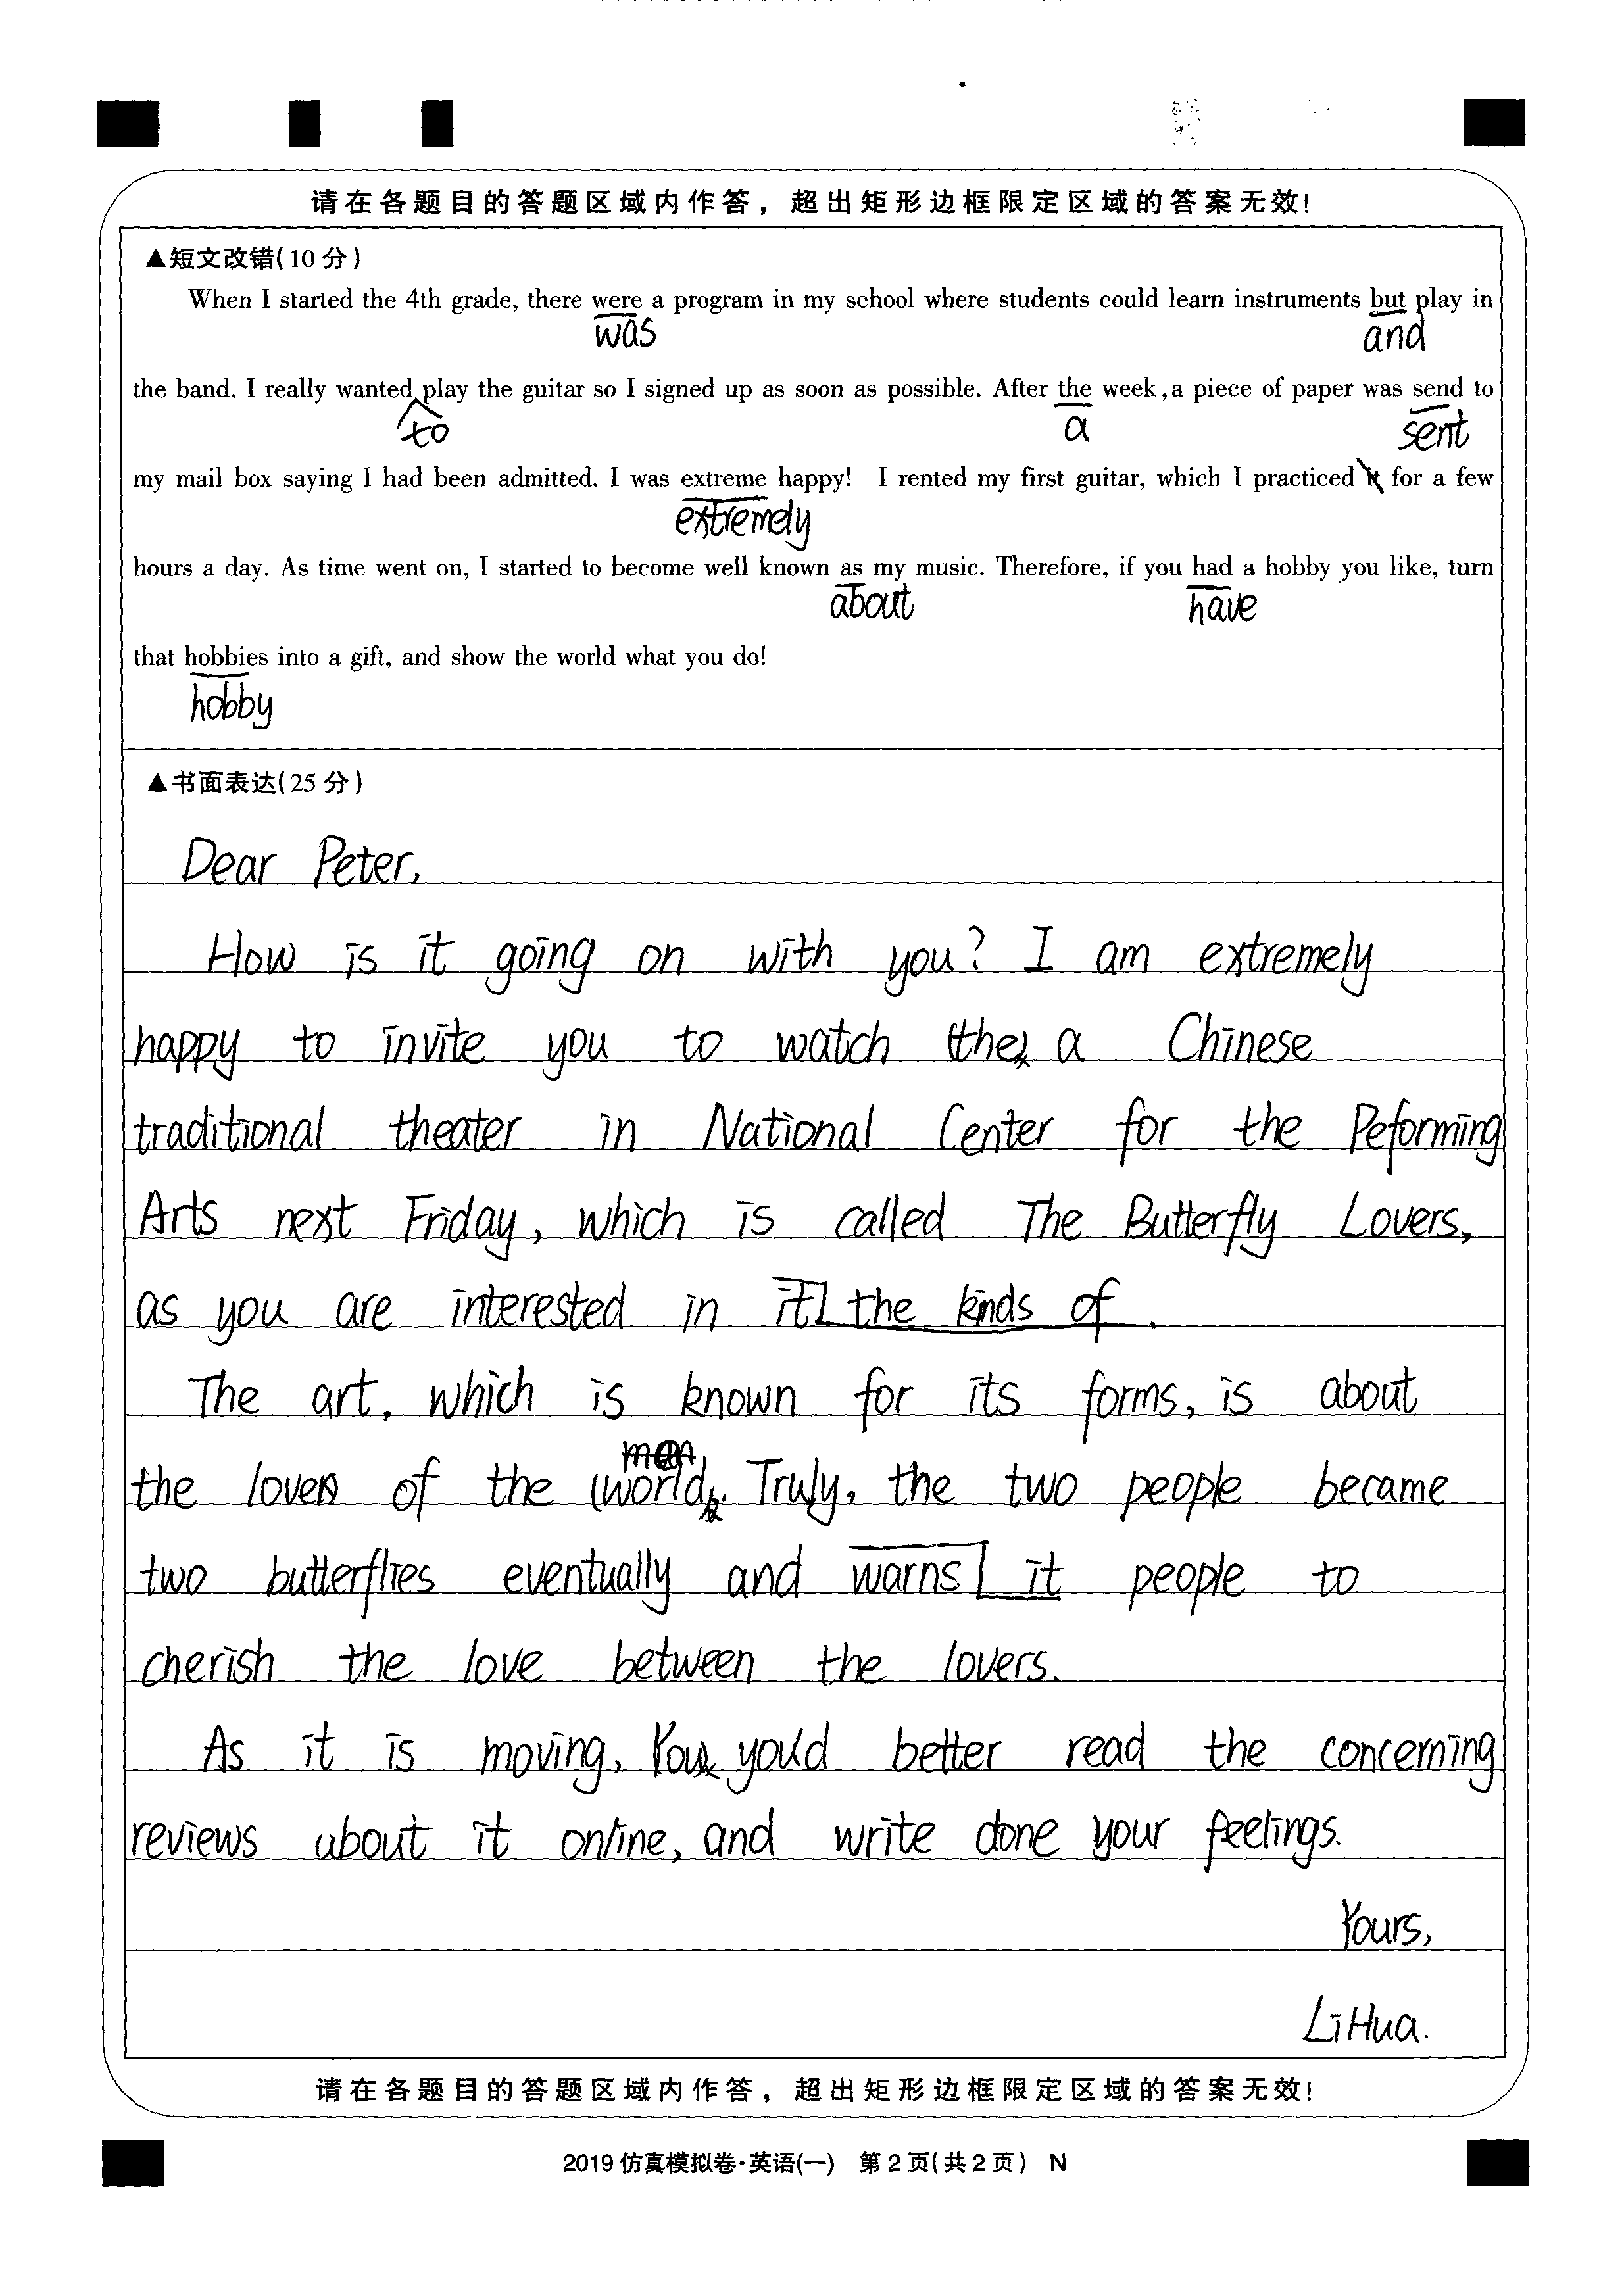 请在各题目的答题区域内作答，超出矩形边框限定区域的答案无效!
▲短文改错(10分)
When I started the 4th grade, there were a program in my school where students could learn instruments but play in
was and
the band. I really wanted play the guitar so I signed up as soon as possible. After the week, a piece of paper was send to
to a sent
my mail box saying I had been admitted. I was extreme happy! I rented my first guitar, which I practiced it for a few
extremely
hours a day. As time went on, I started to become well known as my music. Therefore, if you had a hobby you like, turn
about have
that hobbies into a gift, and show the world what you do!
hobby
▲书面表达(25分)
Dear Peter,
How is it going on with you? I am extremely
happy to invite you to watch (the) a Chinese
traditional theater in National Center for the Peforming
Arts next Friday, which is called The Butterfly Lovers,
as you are interested in it the kinds of.
The art, which is known for its forms, is about
men
the lovers of the (world). Truly, the two people became
two butterflies eventually and warns it people to
cherish the love between the lovers.
As it is moving, You you'd better read the concerning
reviews about it online, and write done your feelings.
Yours,
Li Hua.
请在各题目的答题区域内作答，超出矩形边框限定区域的答案无效!
2019仿真模拟卷·英语(一) 第2页(共2页) N